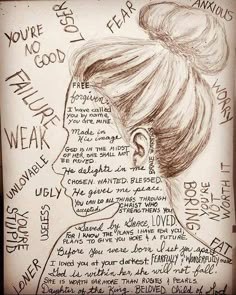 LOSER
FEAR
ANXIOUS
YOU'RE
NO
GOOD
WORRY
FAILURE
WEAK
UNLOVABLE
UGLY
USELESS
YOU'RE
STUPID
LONER
BORING
FREE
forgiven
I have called
you by name,
you are mine.
Made in
His image
GOD IS IN THE MIDST
OF HER, SHE SHALL
NOT BE
MOVED.
He delights in me
CHOSEN. WANTED. BLESSED.
He gives me peace.
YOU CAN DO ALL THINGS THROUGH
accepted
CHRIST WHO
STRENGTHENS YOU.
Saved by Grace, LOVED
FOR I KNOW THE PLANS I HAVE FOR YOU,
PLANS TO GIVE YOU HOPE & A FUTURE.
Before you were born I set you apart
I loved you at your darkest. FEARFULLY & WONDERFULLY made
God is within her she will not fall.
SHE IS WORTH FAR MORE THAN RUBIES & PEARLS
Daughter of the King BELOVED Child of God